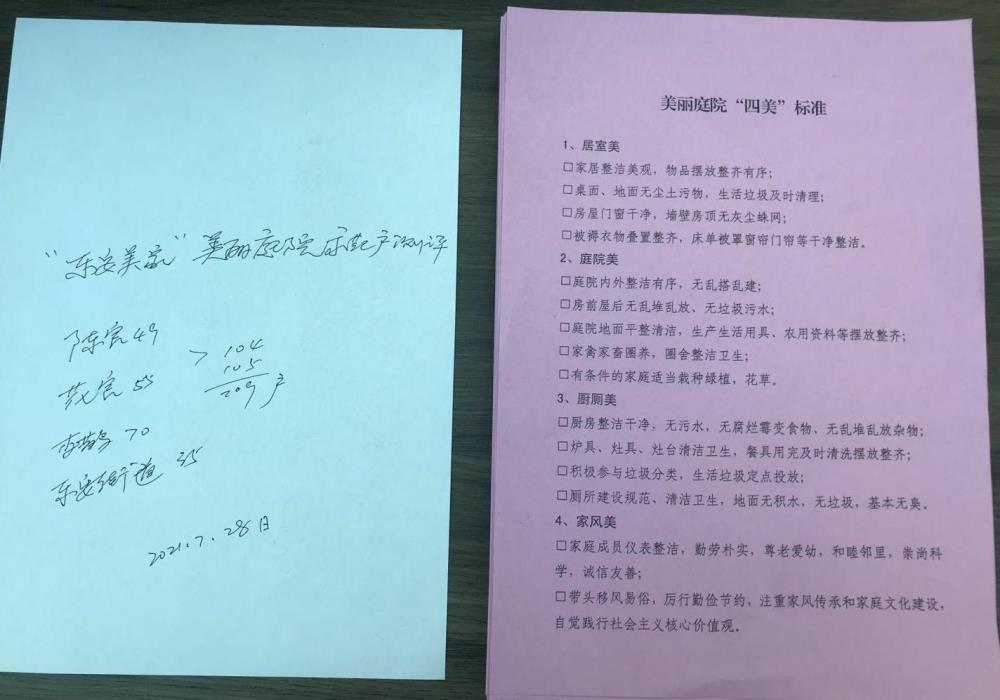 “东安美家”美丽庭院示范户测评
陈官 49
范官 55
> 104
105
209户
李鹊 70
东安街道 35
2021.7.28日
美丽庭院“四美”标准
1、居室美
□家居整洁美观，物品摆放整齐有序；
□桌面、地面无尘土污物，生活垃圾及时清理；
□房屋门窗干净，墙壁房顶无灰尘蛛网；
□被褥衣物叠置整齐，床单被罩窗帘门帘等干净整洁。
2、庭院美
□庭院内外整洁有序，无乱搭乱建；
□房前屋后无乱堆乱放、无垃圾污水；
□庭院地面平整清洁，生产生活用具、农用资料等摆放整齐；
□家禽家畜圈养，圈舍整洁卫生；
□有条件的家庭适当栽种绿植，花草。
3、厨厕美
□厨房整洁干净，无污水，无腐烂霉变食物、无乱堆乱放杂物；
□炉具、灶具、灶台清洁卫生，餐具用完及时清洗摆放整齐；
□积极参与垃圾分类，生活垃圾定点投放；
□厕所建设规范、清洁卫生，地面无积水，无垃圾，基本无臭。
4、家风美
□家庭成员仪表整洁，勤劳朴实，尊老爱幼，和睦邻里，崇尚科
学，诚信友善；
□带头移风易俗，厉行勤俭节约，注重家风传承和家庭文化建设，
自觉践行社会主义核心价值观。